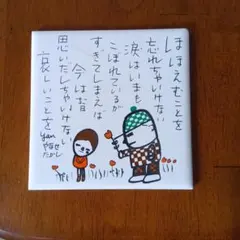 ほほえむことを
忘れちゃいけない
涙はいまも
こぼれているが
すぎてしまえば
今は昔
思いだしちゃいけない
哀しいことを
やなせ
たかし